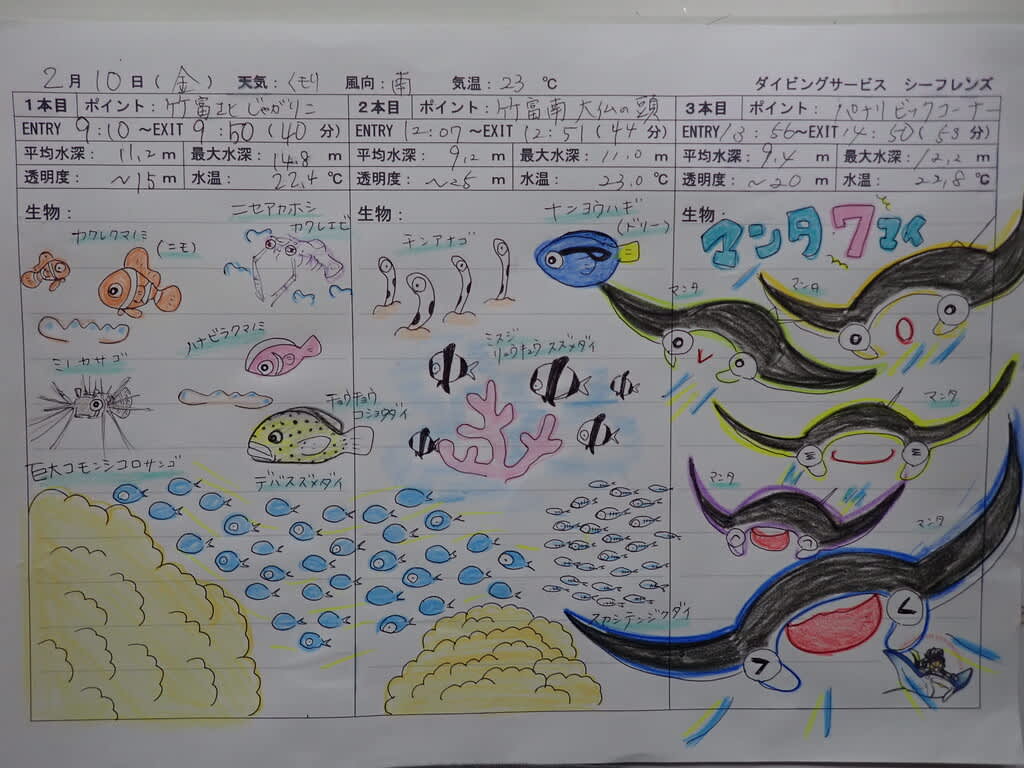 2月10日(金) 天気:くもり 風向:南 気温:23 ℃ ダイビングサービス シーフレンズ
1本目 ポイント:竹富北じゃがりこ
ENTRY 9:10~EXIT 9:50(40分)
平均水深: 11.2 m 最大水深: 14.8 m
透明度: ~15 m 水温: 22.4 ℃
生物:
カクレクマノミ
(ニモ)
ニセアカホシ
カクレエビ
ミノカサゴ
ハナビラクマノミ
チョウチョウ
コショウダイ
巨大コモンシコロサンゴ
デバスズメダイ
2本目 ポイント:竹富南 大仏の頭
ENTRY 12:07~EXIT 12:51(44分)
平均水深: 9.2 m 最大水深: 11.0 m
透明度: ~25 m 水温: 23.0 ℃
生物:
チンアナゴ
ナンヨウハギ
(ドリー)
ミスジ
リュウキュウスズメダイ
スカシテンジクダイ
3本目 ポイント:パナリ ビックコーナー
ENTRY 13:56~EXIT 14:50(53分)
平均水深: 9.4 m 最大水深: 12.2 m
透明度: ~20 m 水温: 22.8 ℃
生物:
マンタ7マイ
マンタ
マンタ
マンタ
マンタ
マンタ